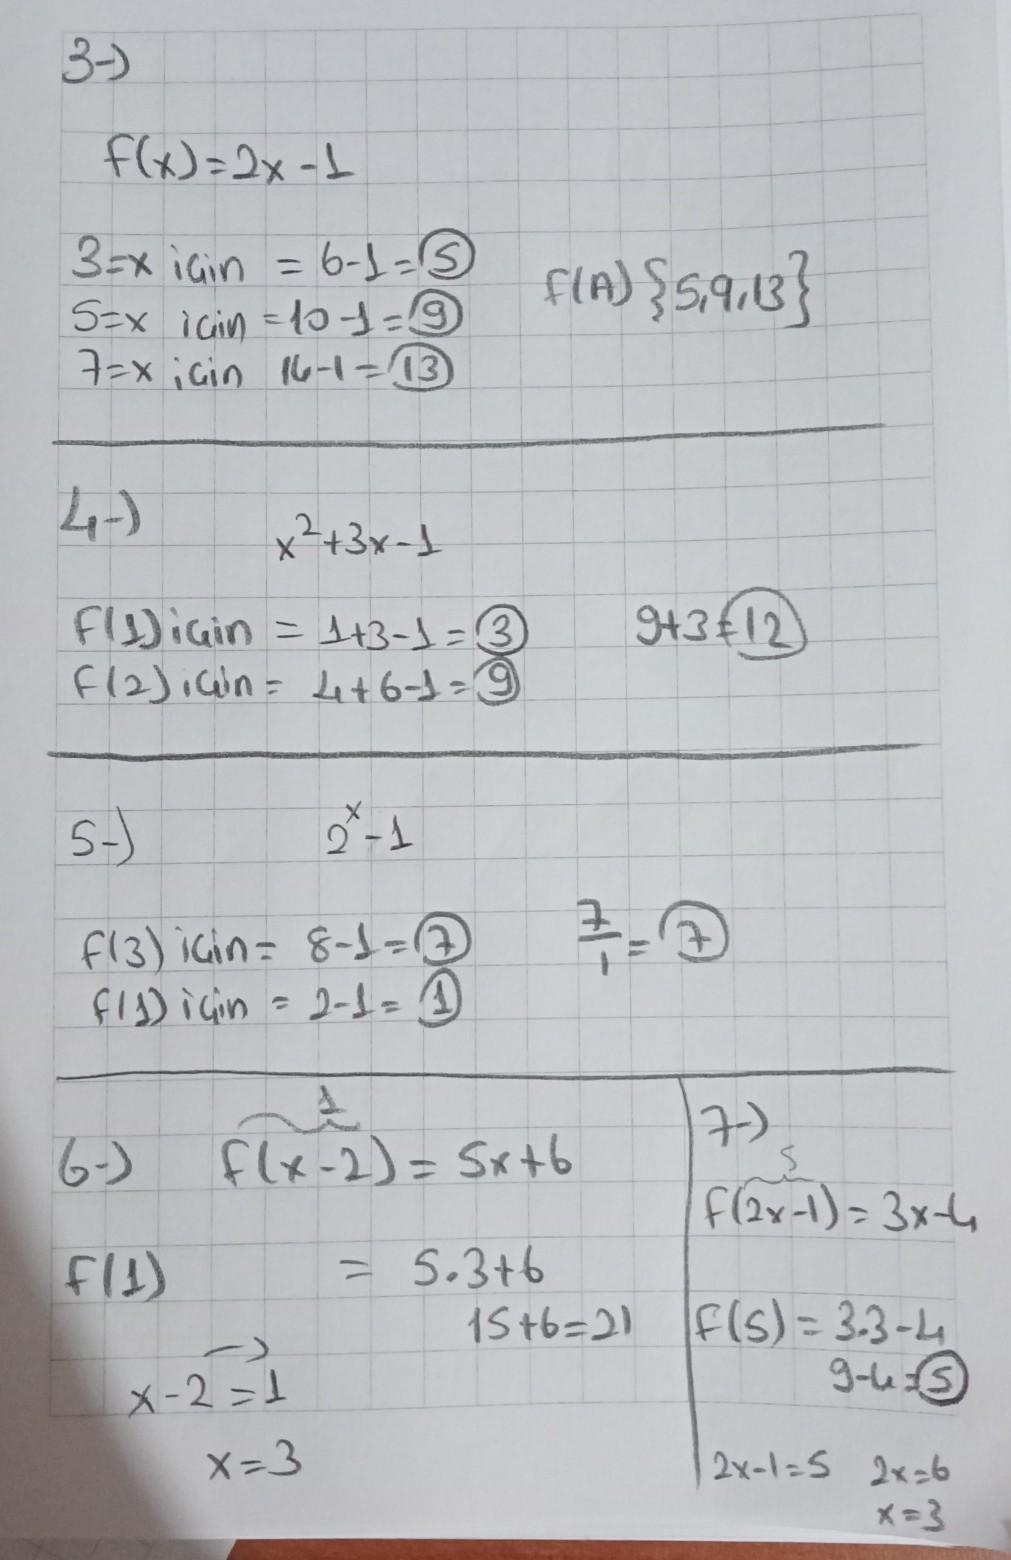 3-)
f(x)=2x-1
3=x için = 6-1=5
5=x için =10-1=9
7=x için 14-1=13
f(A) {5,9,13}
4-)
x²+3x-1
f(1) için = 1+3-1=3
f(2) için = 4+6-1=9
9+3=12
5-)
2ˣ-1
f(3) için = 8-1=7
f(1) için = 2-1=1
7/1=7
6-)
1
f(x-2)=5x+6
f(1) = 5.3+6
15+6=21
x-2=1
x=3
7-)
5
f(2x-1)=3x-4
f(5)=3.3-4
9-4=5
2x-1=5 2x=6
x=3